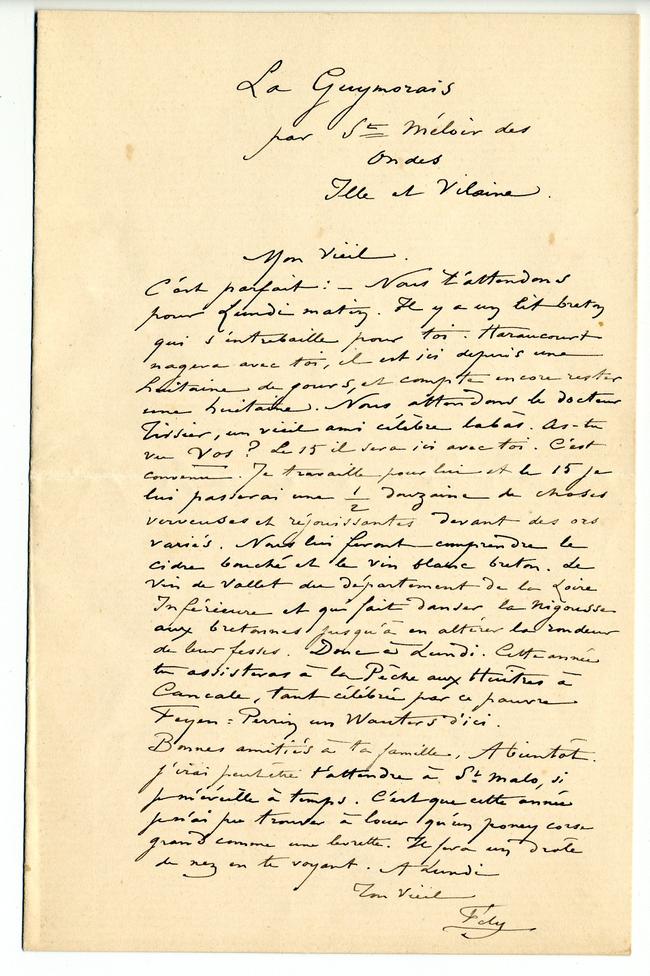 La Guymorais
par St Méloir des
Ondes
Ille et Vilaine.
Mon Vieil.
C'est parfait : — Nous t'attendons
pour Lundi matin. Il y a un lit breton
qui s'entrebaille pour toi. Haraucourt
nagera avec toi, il est ici depuis une
huitaine de jours, et compte encore rester
une huitaine. Nous attendons le docteur
Tissier, un vieil ami célèbre labàs. As-tu
vu Vos ? Le 15 il sera ici avec toi. C'est
convenu. Je travaille pour lui et le 15 je
lui passerai une 1/2 douzaine de choses
verveuses et réjouissantes devant des ors
variés. Nous lui ferons comprendre le
cidre bouché et le vin blanc breton. Le
vin de Vallet du département de la Loire
Inférieure et qui fait danser la nigousse
aux bretonnes jusqu'à en altérer la rondeur
de leur fesses. Donc à Lundi. Cette année
tu assisteras à la Pêche aux Huîtres à
Cancale, tant célébrée par ce pauvre
Feyen=Perrin un Wauters d'ici.
Bonnes amitiés à ta famille, A bientôt.
j'irai peutêtre t'attendre à St Malo, si
je m'éveille à temps. C'est que cette année
je n'ai pu trouver à louer qu'un poney corse
grand comme une levrette. Il fera un drôle
de nez en te voyant. A Lundi
Ton vieil
Fély